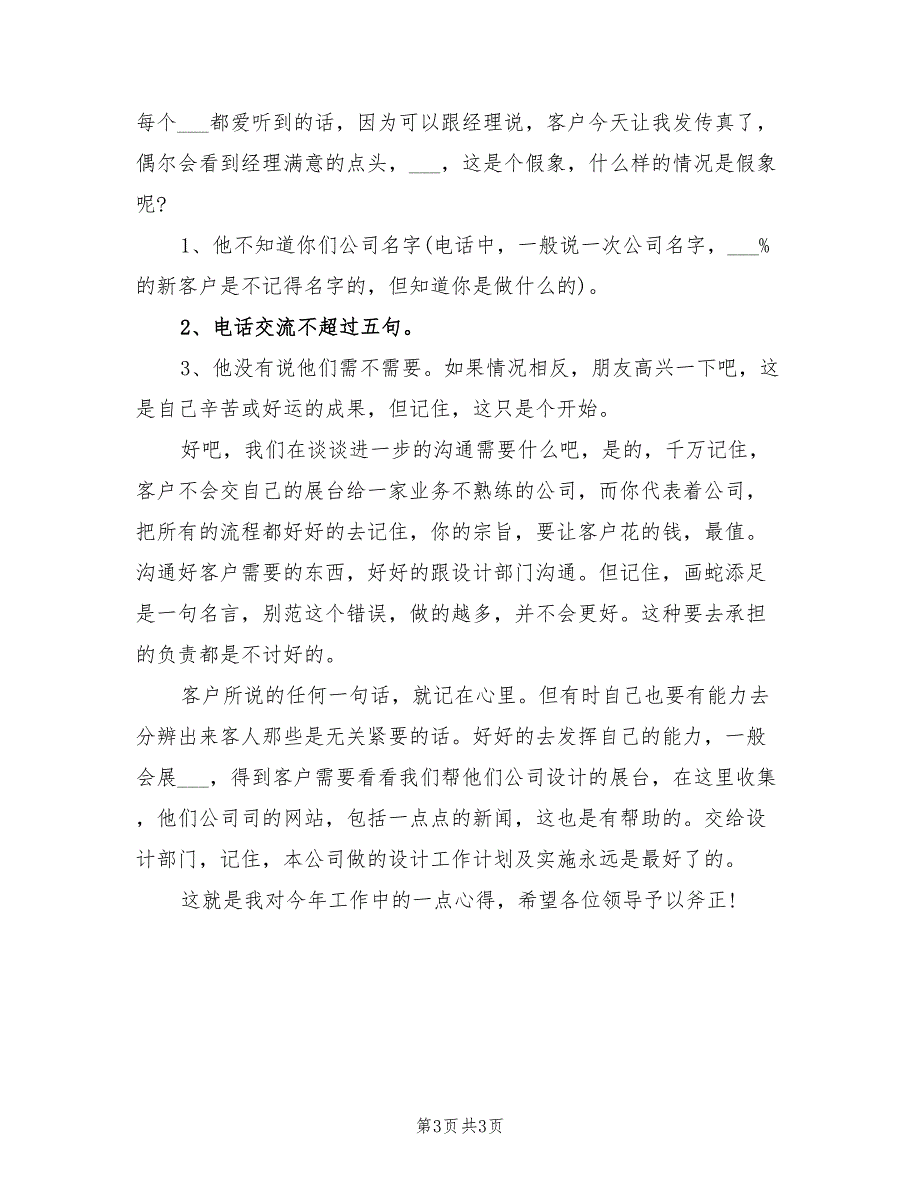 每个___都爱听到的话，因为可以跟经理说，客户今天让我发传真了，
偶尔会看到经理满意的点头，___，这是个假象，什么样的情况是假象
呢?
1、他不知道你们公司名字(电话中，一般说一次公司名字，___%
的新客户是不记得名字的，但知道你是做什么的)。
2、电话交流不超过五句。
3、他没有说他们需不需要。如果情况相反，朋友高兴一下吧，这
是自己辛苦或好运的成果，但记住，这只是个开始。
好吧，我们在谈谈进一步的沟通需要什么吧，是的，千万记住，
客户不会交自己的展台给一家业务不熟练的公司，而你代表着公司，
把所有的流程都好好的去记住，你的宗旨，要让客户花的钱，最值。
沟通好客户需要的东西，好好的跟设计部门沟通。但记住，画蛇添足
是一句名言，别范这个错误，做的越多，并不会更好。这种要去承担
的负责都是不讨好的。
客户所说的任何一句话，就记在心里。但有时自己也要有能力去
分辨出来客人那些是无关紧要的话。好好的去发挥自己的能力，一般
会展___，得到客户需要看看我们帮他们公司设计的展台，在这里收集
，他们公司司的网站，包括一点点的新闻，这也是有帮助的。交给设
计部门，记住，本公司做的设计工作计划及实施永远是最好了的。
这就是我对今年工作中的一点心得，希望各位领导予以斧正!
第3页 共3页